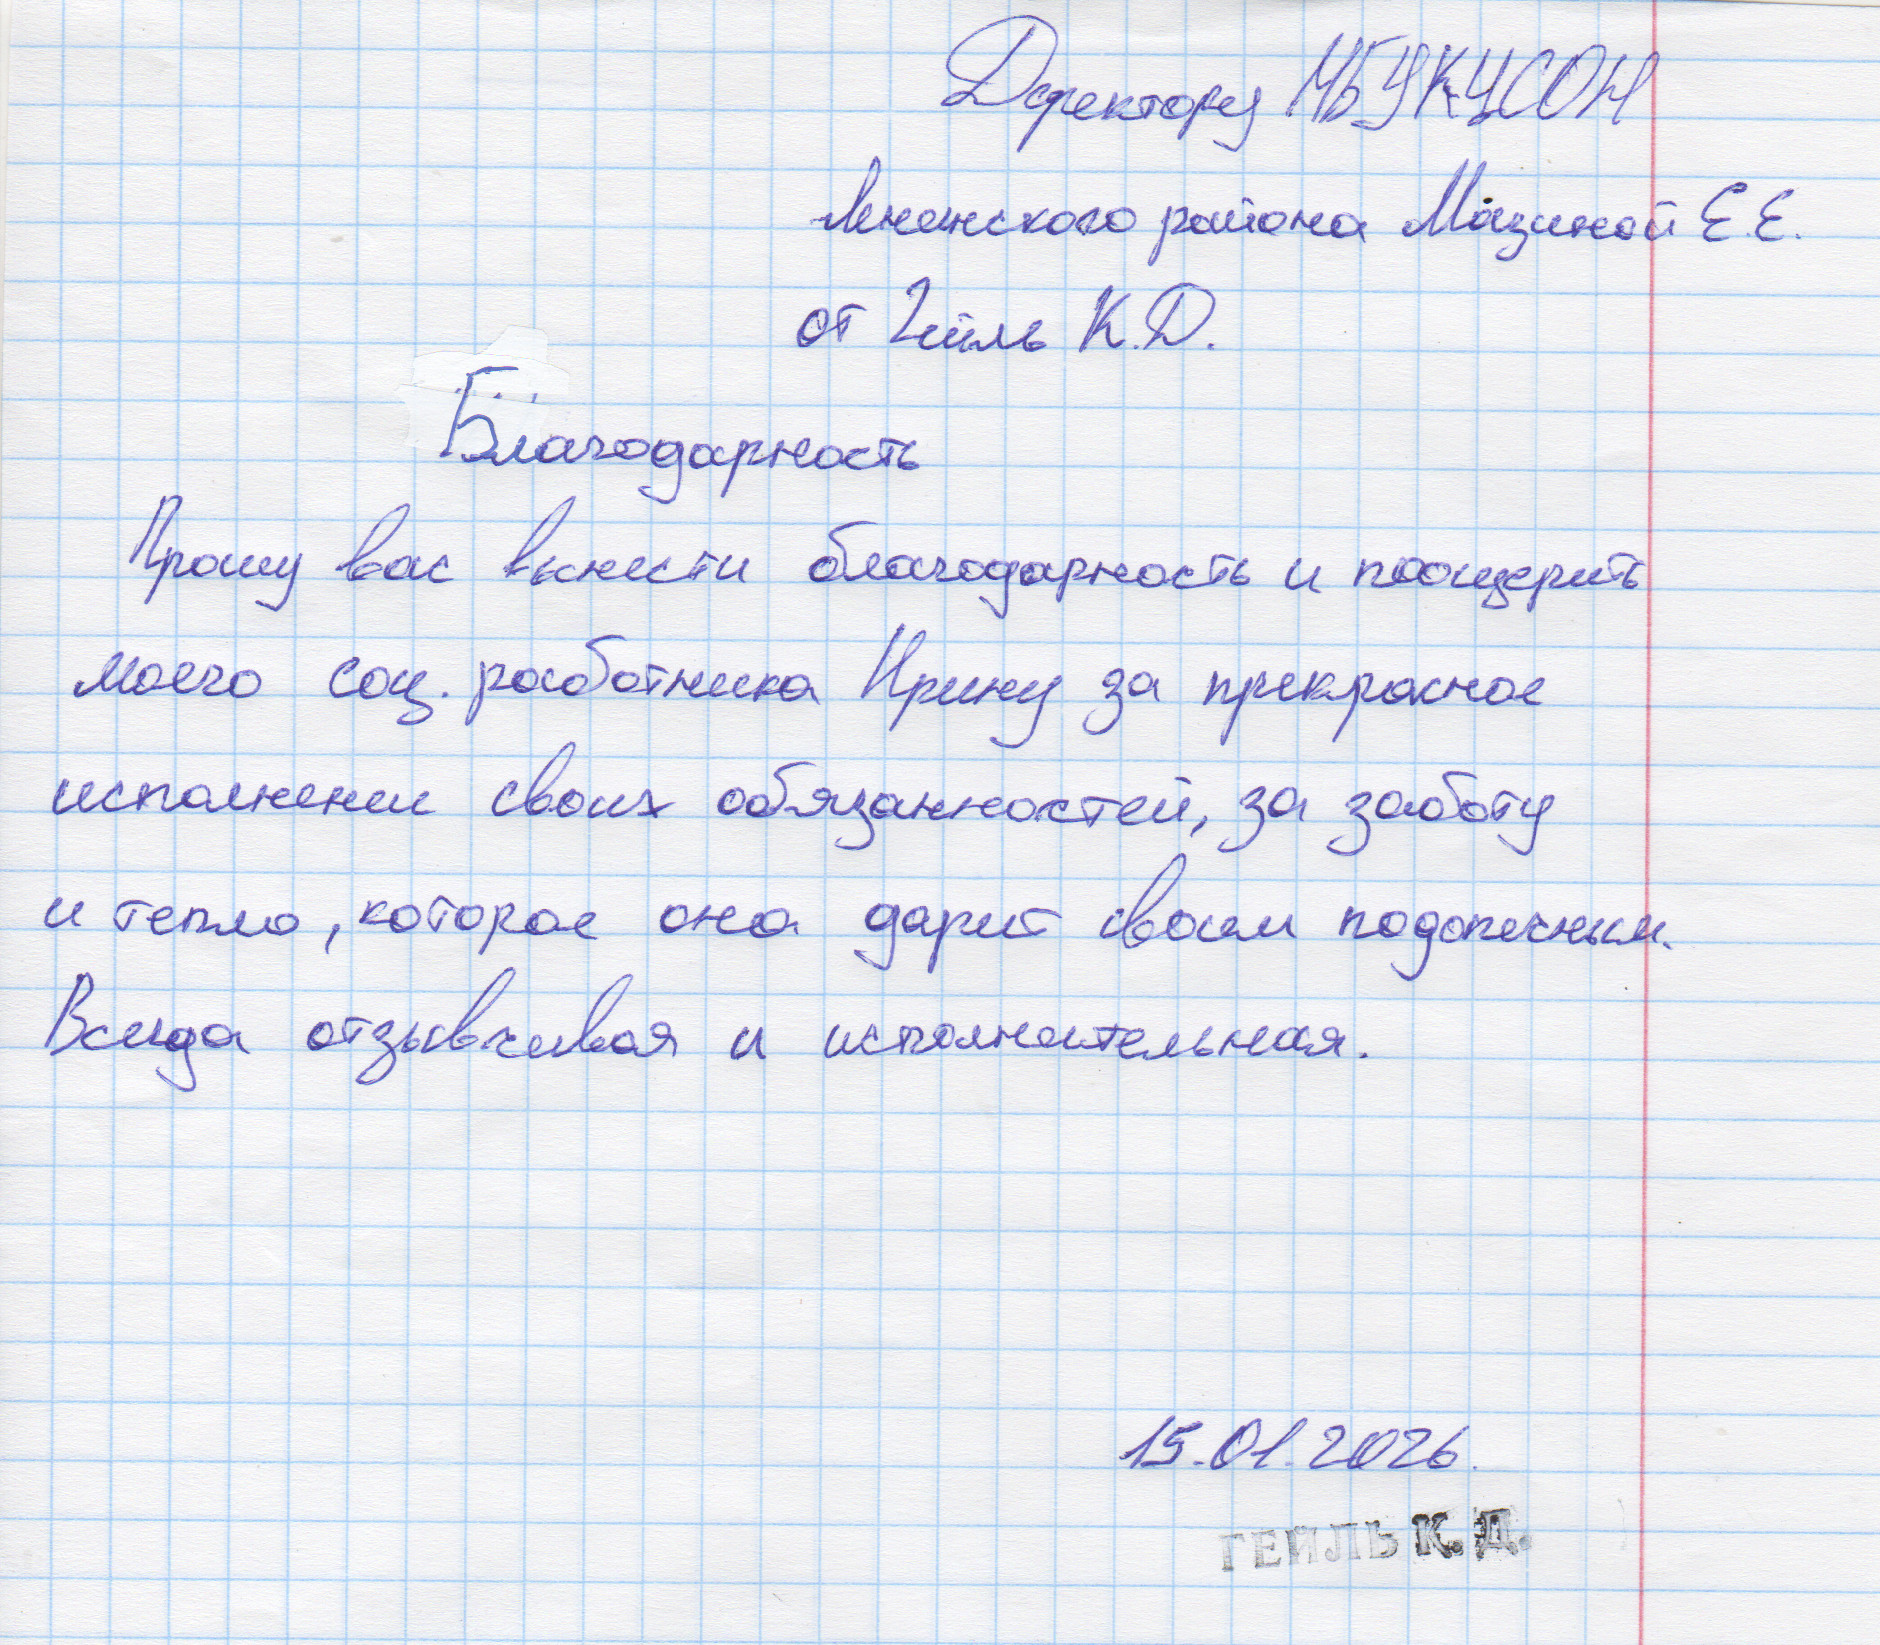 Директору МБУКЦСОН
Ленинского района Мазиной Е.Е.
от Гейль К.Д.
Благодарность
Прошу вас вынести благодарность и поощерить
моего соц. работника Ирину за прекрасное
исполнении своих обязанностей, за заботу
и тепло, которое она дарит своим подопечным.
Всегда отзывчивая и исполнительная.
15.01.2026.
ГЕЙЛЬ К. Д.